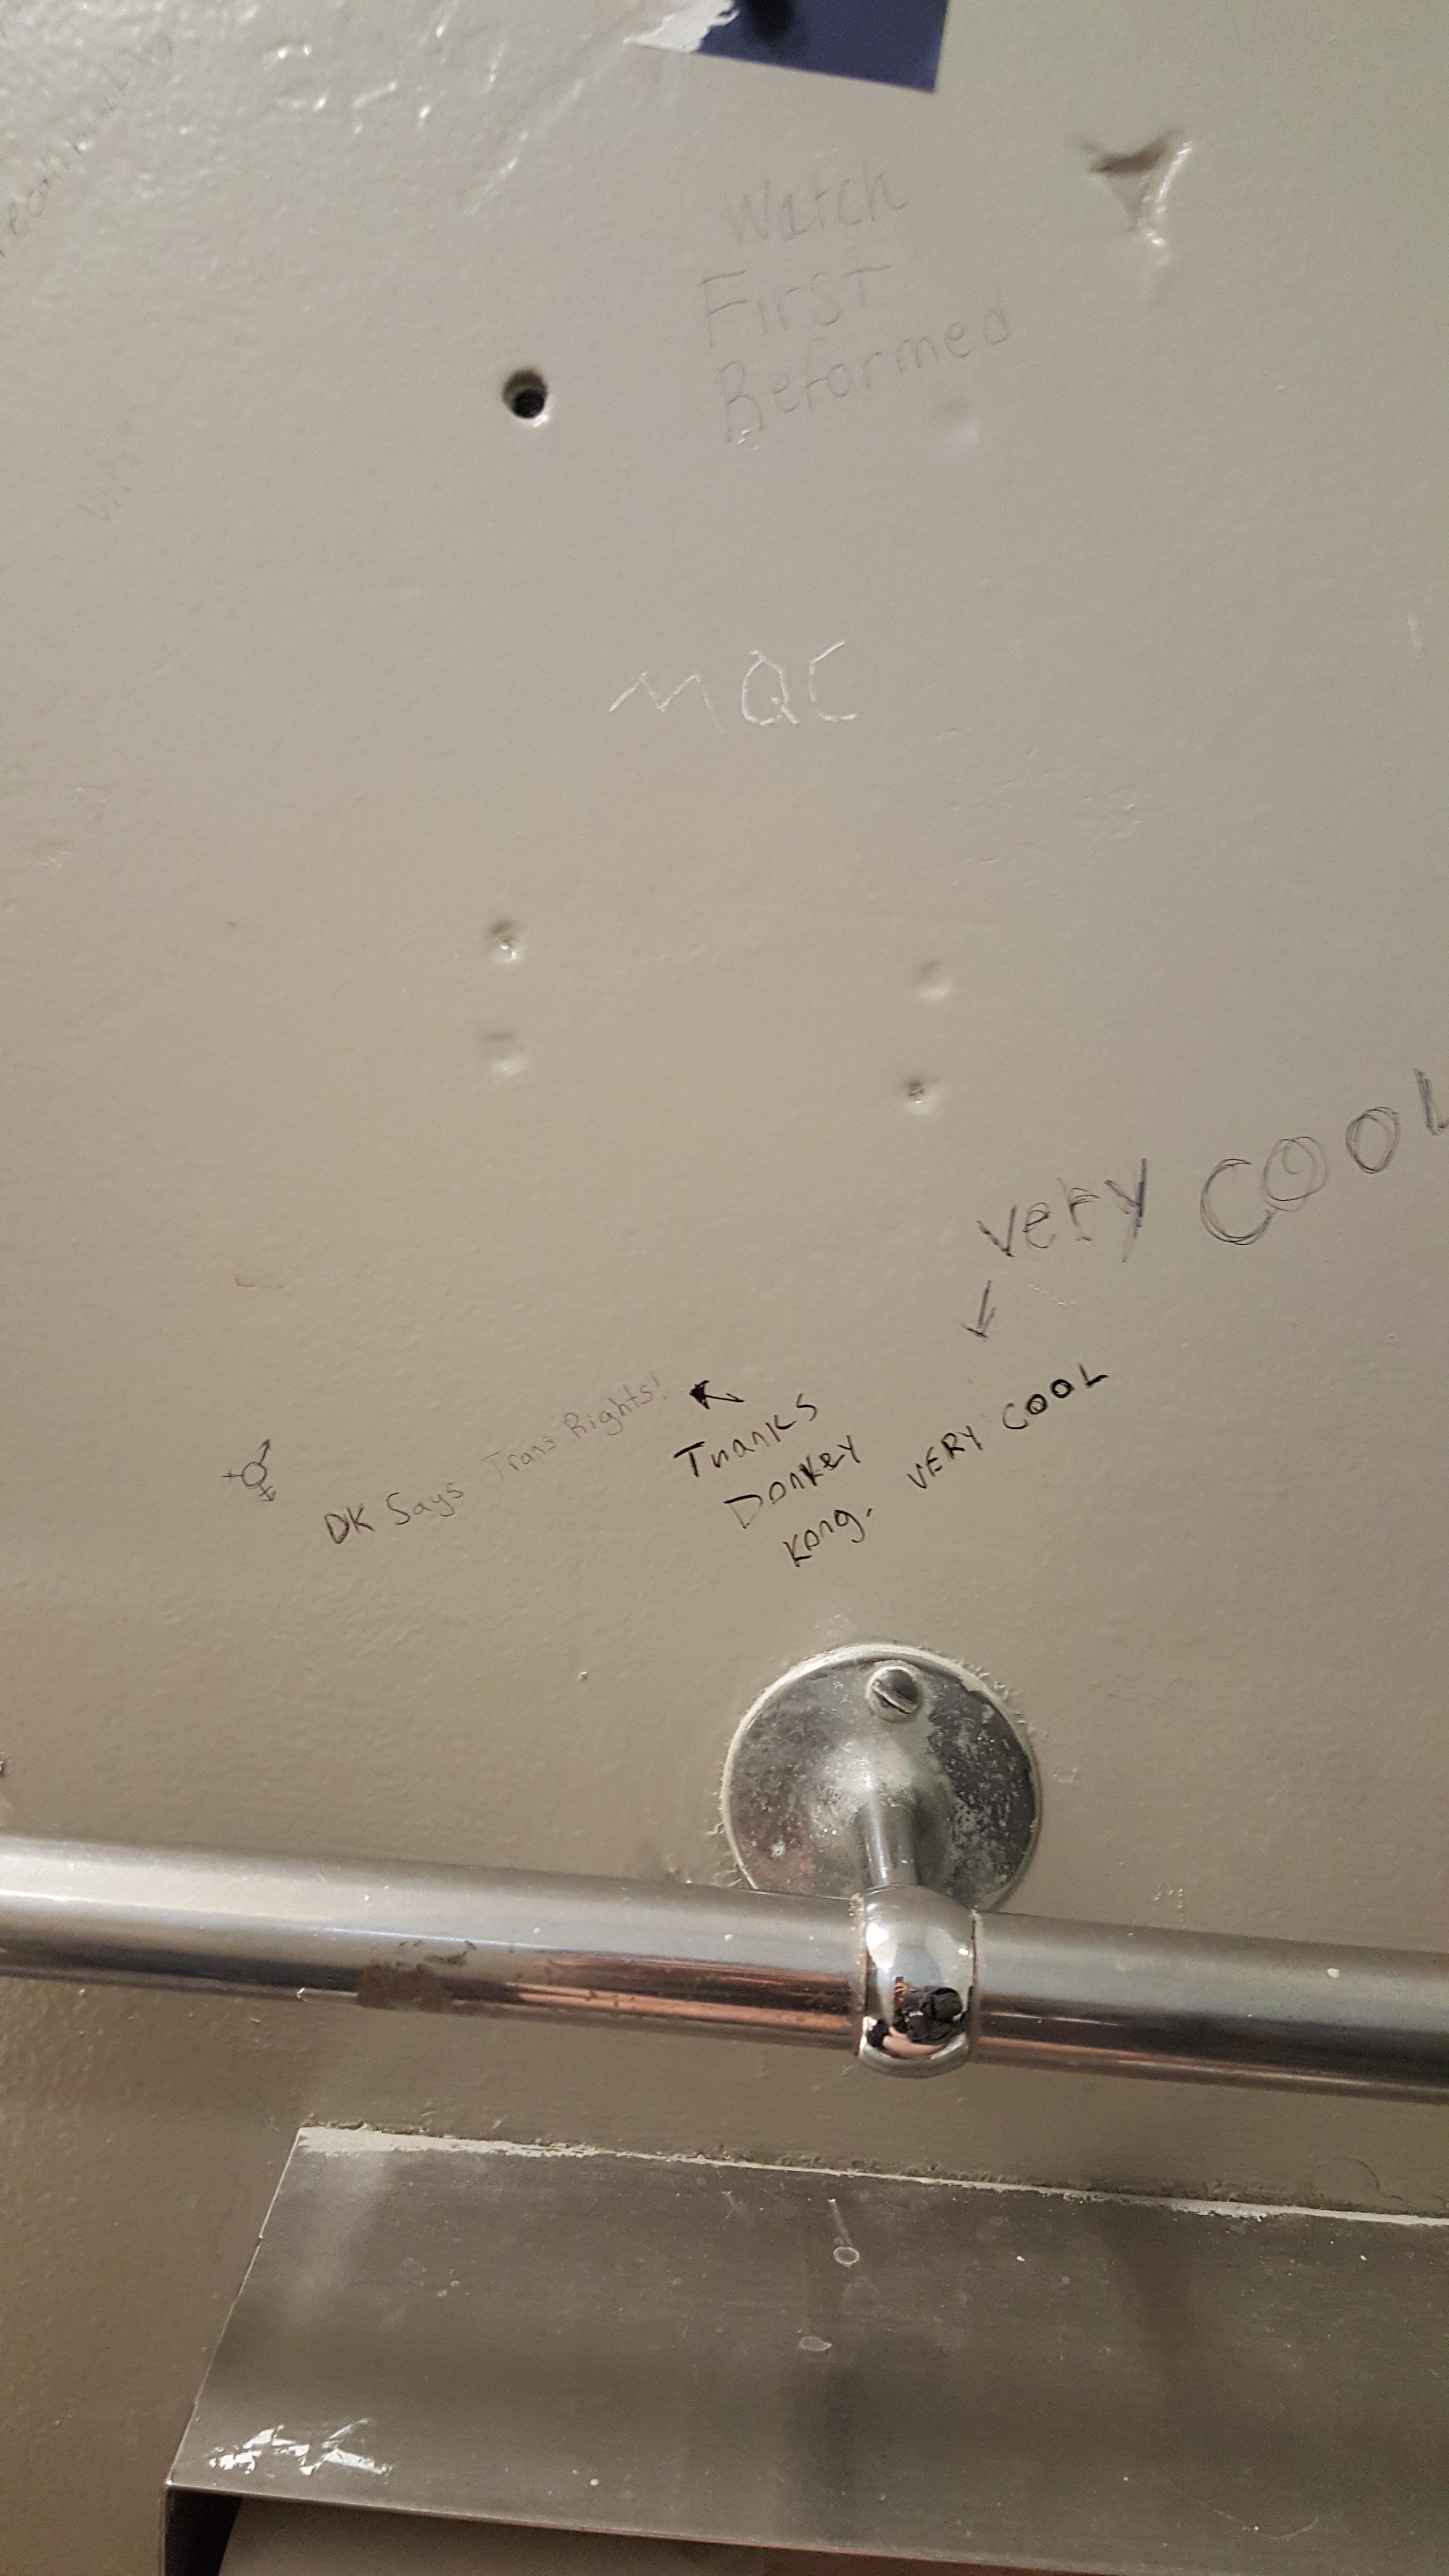 Watch
First
Reformed
MQC
very COOL
DK Says Trans Rights!
Thanks
Donkey
Kong. VERY COOL